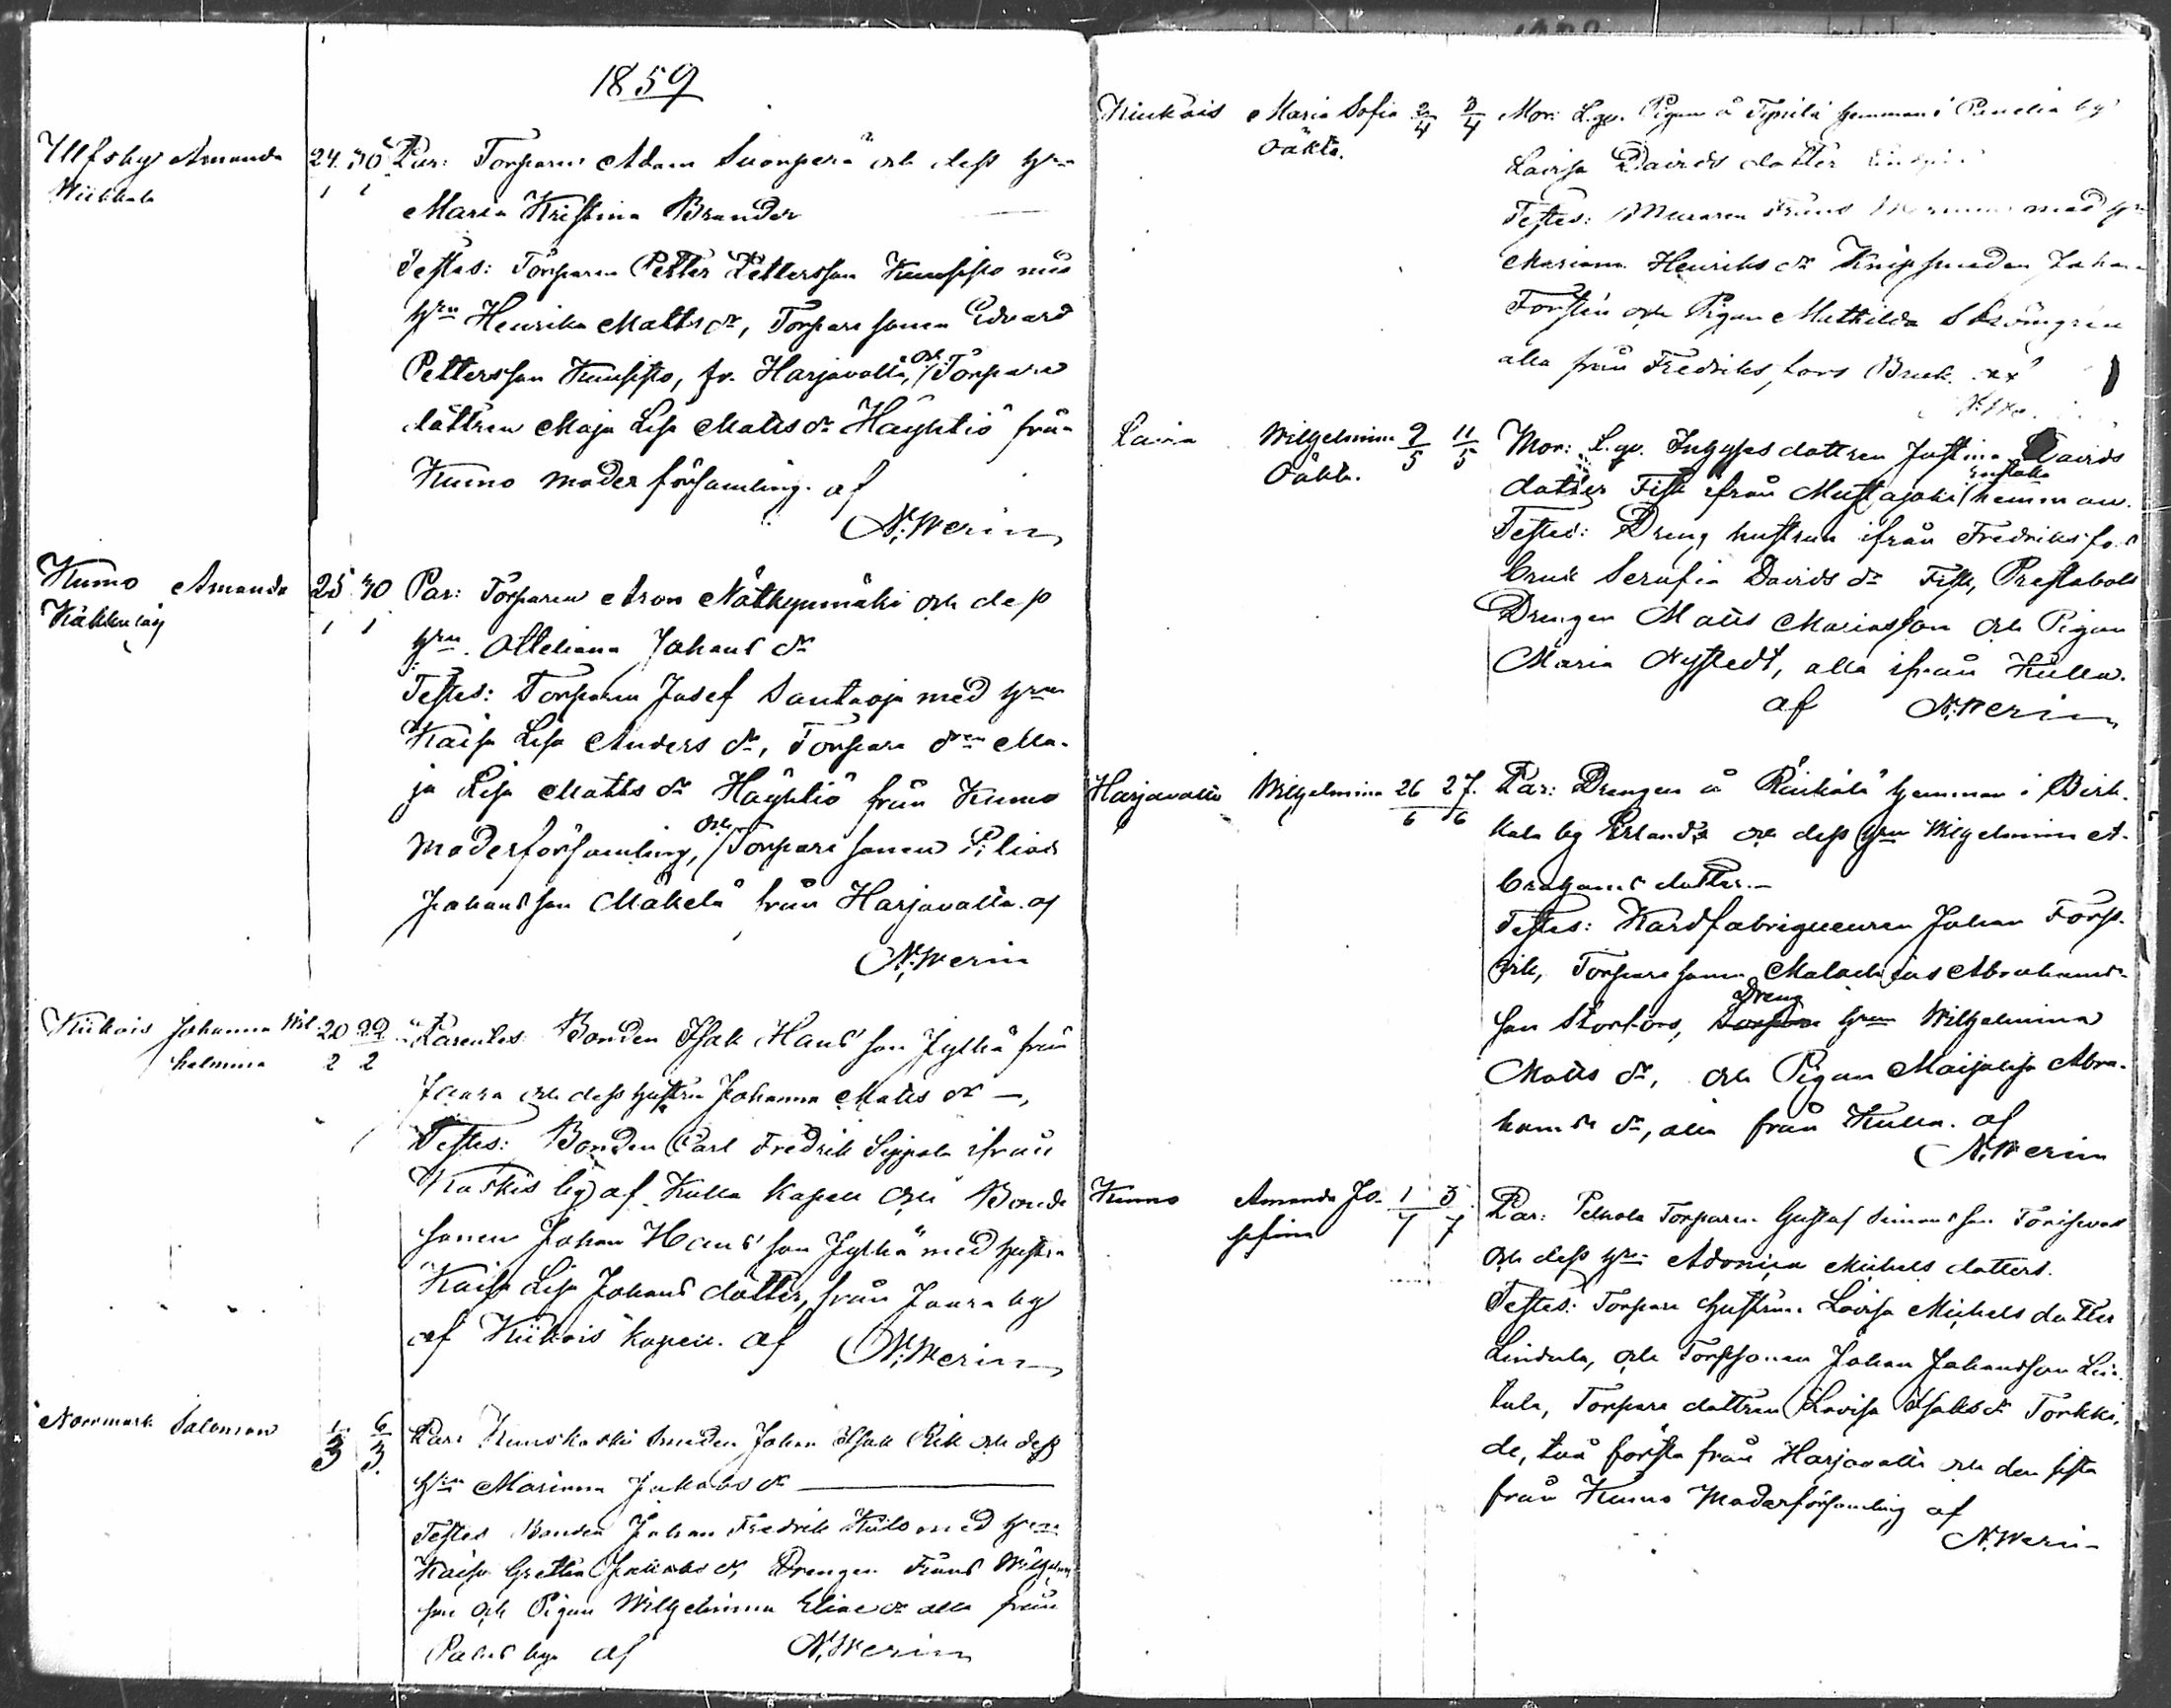 1859
Ulfsby Amanda 24. 30 Par: Torparen Adam Suonperä och dess hru
Wiikkala 1 1
Maria Kristina Brander
Testes: Torparen Petter Pettersson Kuusisto med
hru Henrika Matts dr, Torpare sonen Edvard
Pettersson Kuusisto, fr. Harjavalta, och Torpare
dattren Maja Lisa Matts dr Häyhtiö från
Kumo moderförsamling. af
N. Werin
Kumo Amanda 25 30 Par: Torparen Aron Nätkynmäki och dess
1 1
hru Otteliana Johans dr
Testes: Torparen Josef Santaoja med hru
Kaisa Lisa Anders dr, Torpare dren Ma-
ja Lisa Matts dr Häyhtiö från Kumo
moderförsamling, och Torpare sonen Elias
Johansson Mäkelä från Harjavalta. af
N. Werin
Kiukais Johanna Wil- 20 22 Parentes: Bonden Isak Hans son Jylhä från
helmina 2 2
Jaara och dess hustru Johanna Matts dr —,
Testes: Bonden Carl Fredrik Seppälä ifrån
Kaskis by af Kulla Kapell och Bonde
sonen Johan Hans son Jylhä med hustru
Kaisa Lisa Johans dotter, från Jaara by
af Kiukais kapell. af N. Werin
Norrmark Salomon 1 6 Par: smeden Johan Isak och dess
3 3
hru Marianna Jakobs dr
Testes Bonden Johan Fredrik med hru
Kaisa Gretha dr, Drengen Frans Wilhelms
son och Pigan Wilhelmina Elias dr alla från
by af N. Werin
Kiukais Maria Sofia 2 3 Mor: L.qv. Pigan å hemman i Panelia by
Oäkta. 4 4
Lovisa Davids dotter
Testes: Muraren Frans med hru
Mariana Henriks dr Knipsmeden Johan
Forstén och Pigan Mathilda Strömgrén
alla från Fredriksfors Bruk.
Lavia Wilhelmina 9 11 Mor: L.qv. Inhyses dottren Justina Davids
Oäkta. 5 5
dotter Fisk ifrån Mustajoki hemman.
Testes: Dreng hustrun ifrån Fredriksfors
bruk Serafia Davids dr Fisk, Prestabols
Drengen Matts Mariasson och Pigan
Maria Nystedt, alla ifrån Kulla.
af N. Werin
Harjavalta Wilhelmina 26 27. Par: Drengen å hemman i Birk-
6 6
kala by Erland och dess hru Wilhelmina A-
brahams dotter.—
Testes: Kardfabriqueuren Johan Fors-
Torpare sonen Malachias Abrahams-
son Storfors, Dreng hrun Wilhelmina
Matts dr, och Pigan Maijalisa Abra-
hams dr, alla från Kulla. af
N. Werin
Kumo Amanda Jo- 1 3 Par: Torparen Gustaf Simonsson
sefina 7 7
och dess hru Adonica Michels dotter.
Testes: Torpare hustrun Lovisa Michels dotter
Lindula, och Torpsonen Johan Johansson Lin-
tula, Torpare dottren Lovisa Isaks dr Torkki,
de, två första från Harjavalta och den sista
från Kumo Moderförsamling af
N. Werin